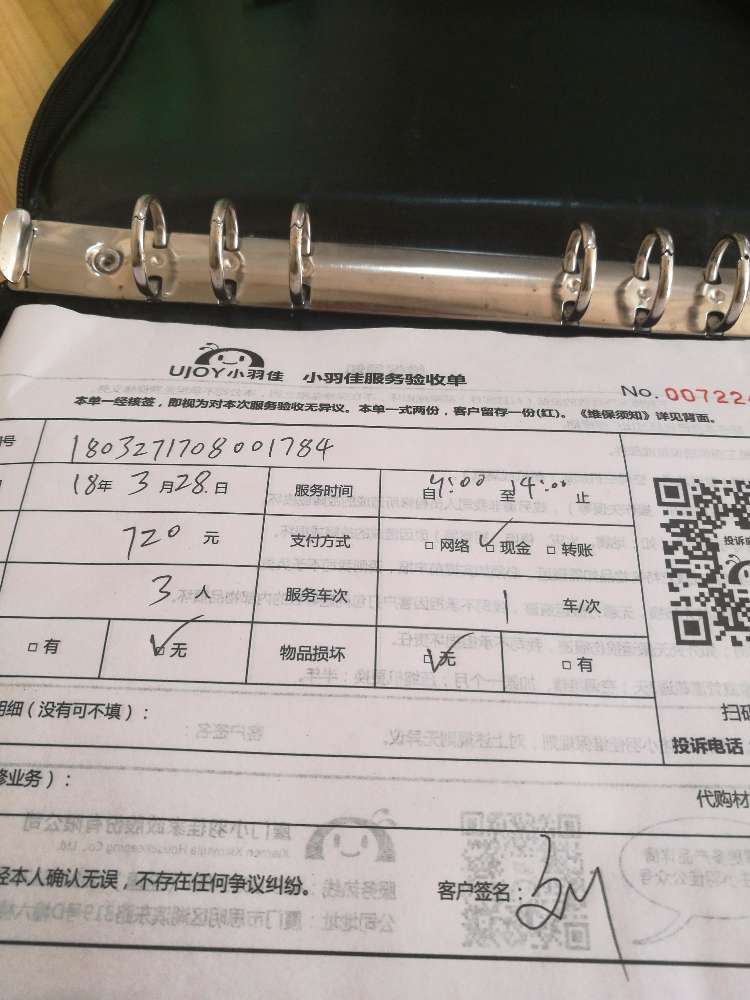 UJOY小羽佳 小羽佳服务验收单
No. 00722
本单一经核签，即视为对本次服务验收无异议。本单一式两份，客户留存一份(红)。《维保须知》详见背面。
号 1803271708001784
18年 3月28日 服务时间 自9:00至14:00止
720元 支付方式 □网络 □现金 □转账
3人 服务车次 1 车/次
□有 □无 物品损坏 □无 □有
明细（没有可不填）：
扫码
投诉电话
修业务）：
代购材
经本人确认无误，不存在任何争议纠纷。 客户签名：